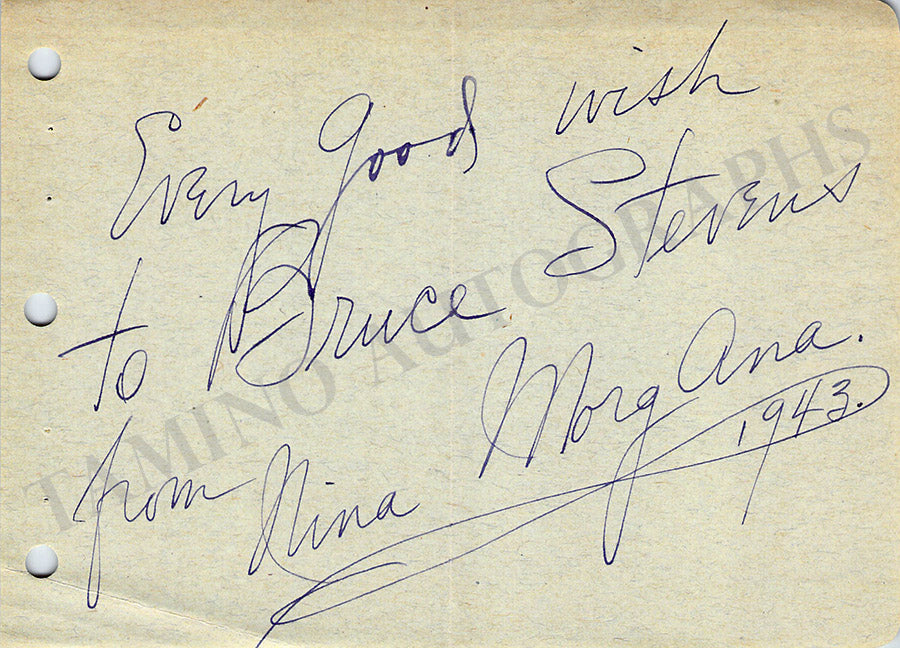 Every good wish
to Bruce Stevens
from Nina MorgAna.
1943.
TAMINO AUTOGRAPHS